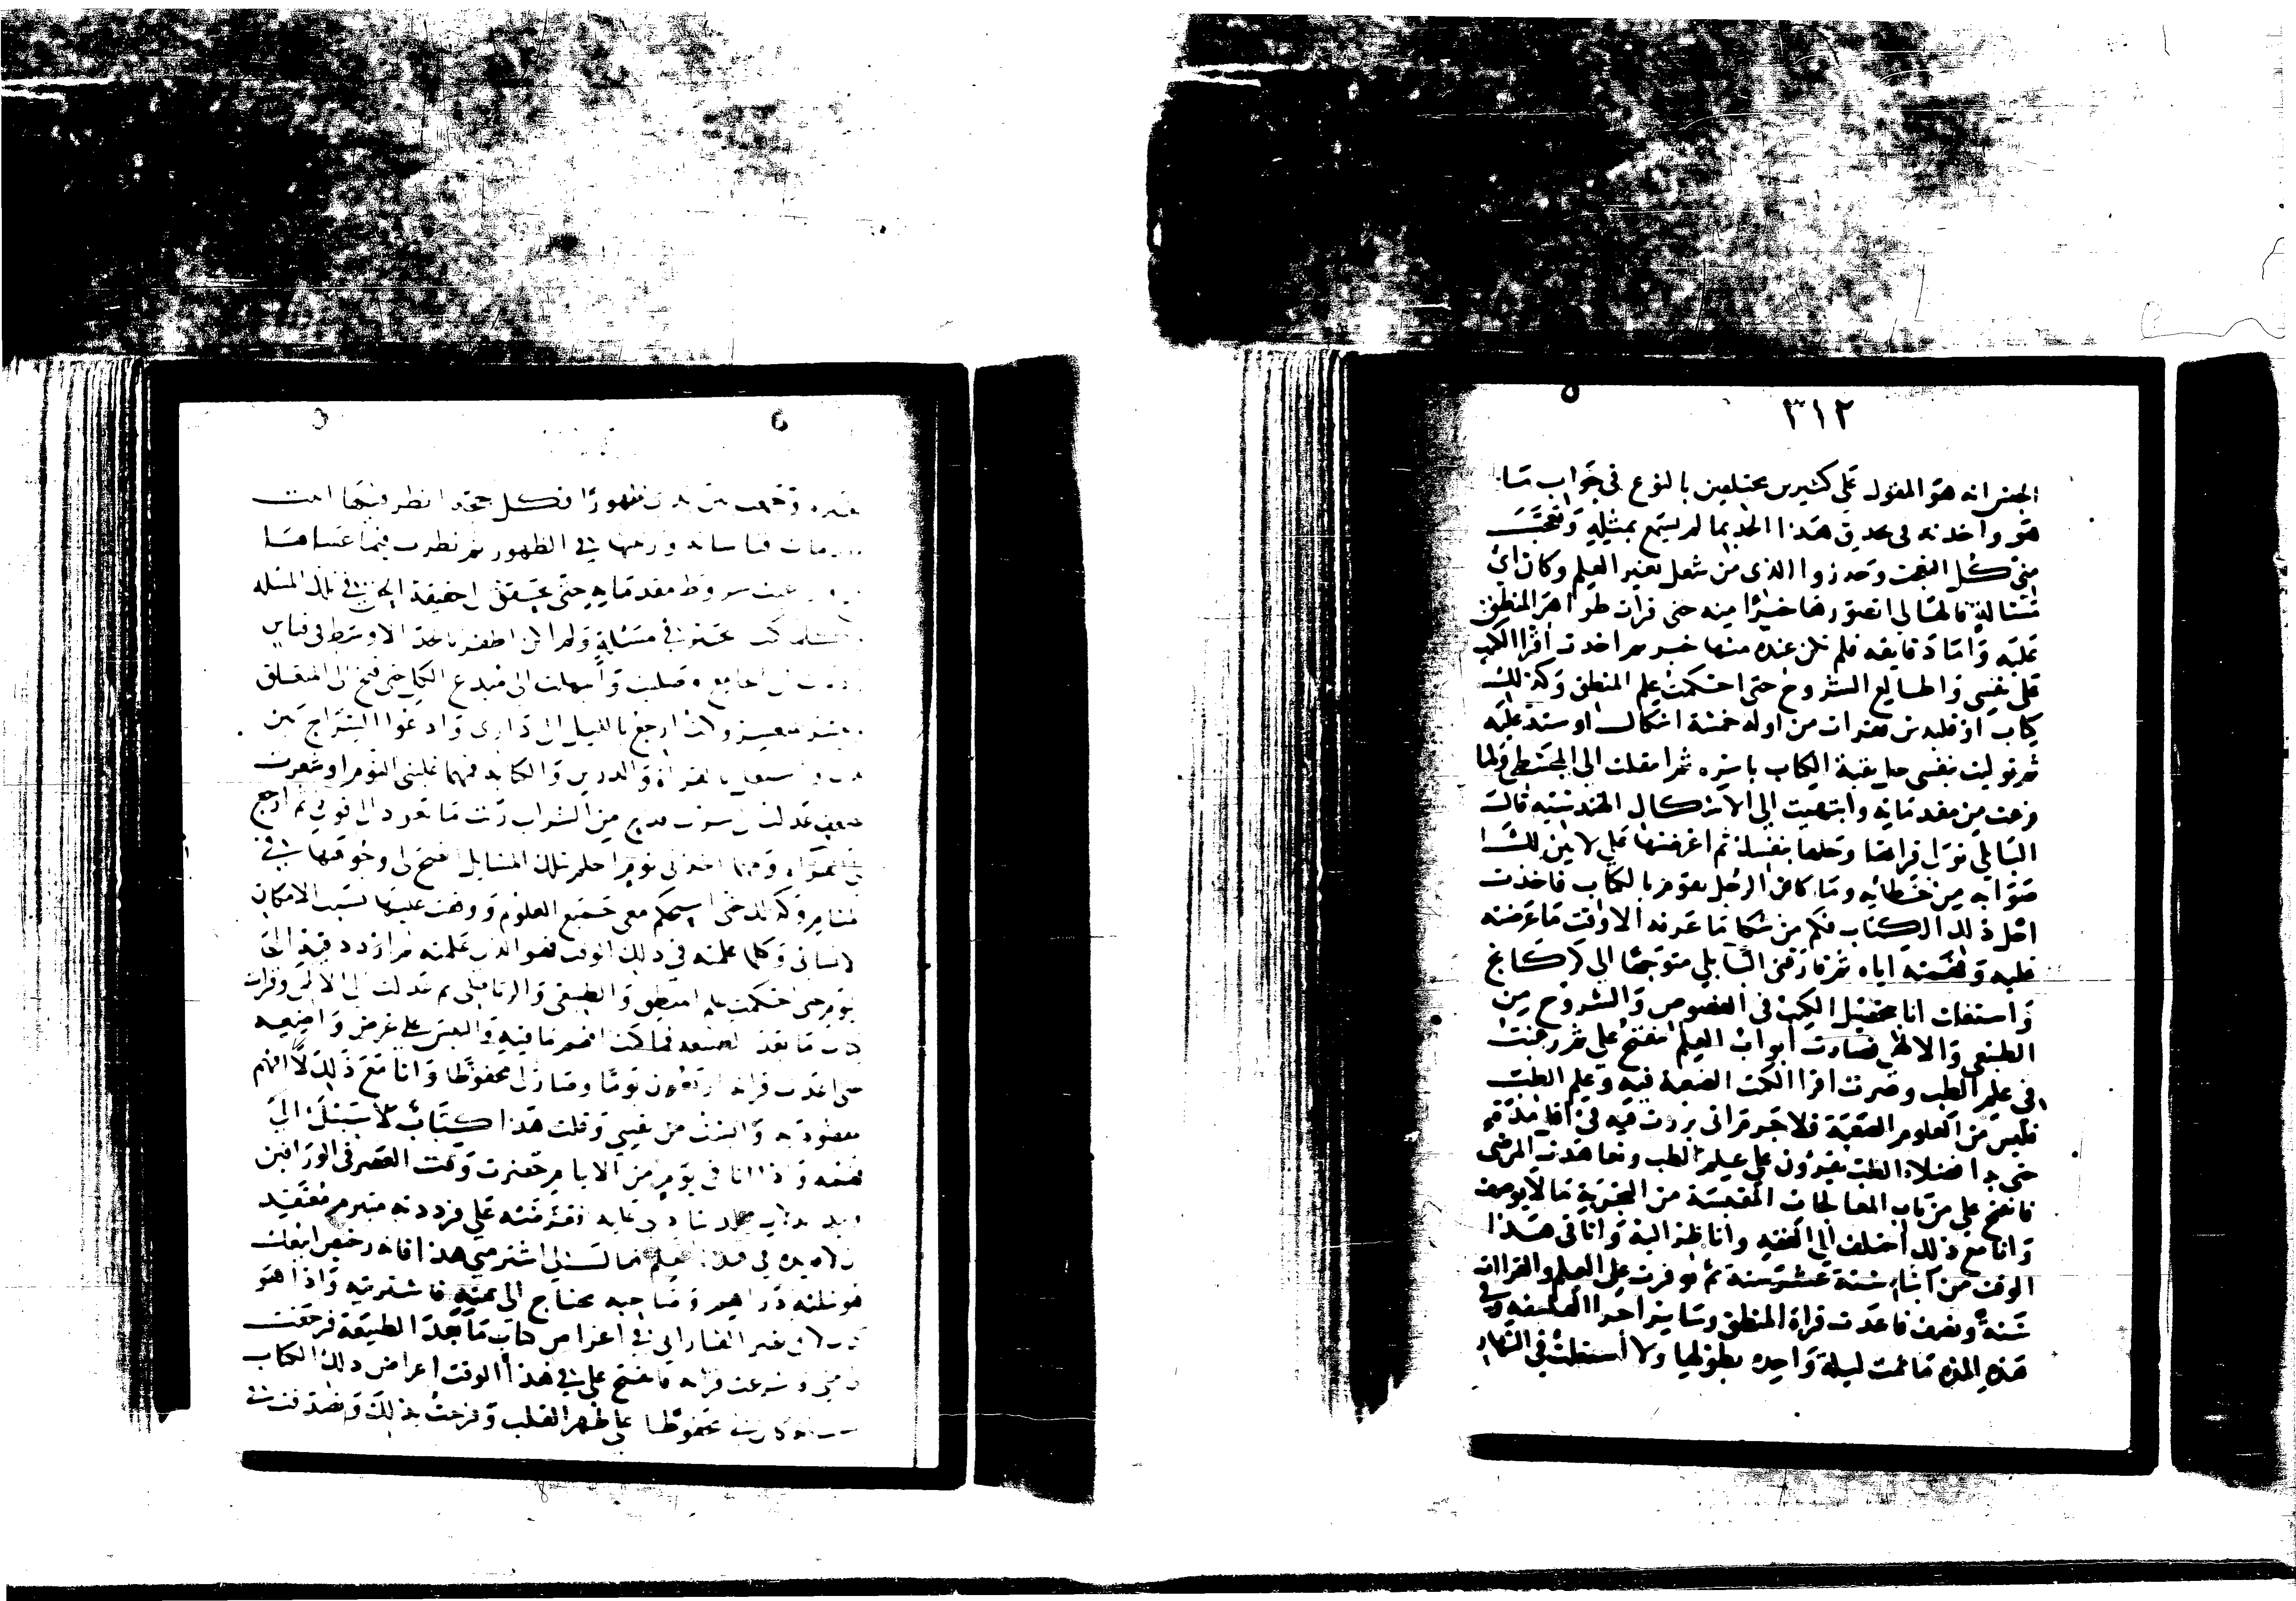 ٣١٢
الجنس انه هو المقول على كثيرين مختلفين بالنوع في جواب ما
هو واخذته في تحقيق هذا الحد بما لم يسمع بمثله وتعجب
مني كل التعجب وحذر والدي من شغلي بغير العلم وكان اي
مسئالة قالها لي اتصورها خيرا منه حتى قرات ظواهر المنطق
عليه واما دقايقه فلم تكن عنده منها خبر ثم اخدت اقرا الكتب
على نفسي واطالع الشروح حتى احكمت علم المنطق وكذلك
كتاب اوقليدس فقرات من اوله خمسة اشكال او ستة عليه
ثم توليت بنفسي حل بقية الكتاب باسره ثم انتقلت الى المجسطي ولما
فرغت من مقدماته وانتهيت الى الاشكال الهندسية قال
الناتلي تول قراءتها وحلها بنفسك ثم اعرضها علي لابين لك
صوابه من خطائه وما كان الرجل يقوم بالكتاب فاخذت
احل ذلك الكتاب فكم من شكل ما عرفه الا وقت ما عرضته
عليه وفهمته اياه ثم فارقني الناتلي متوجها الى كركانج
واشتغلت انا بتحصيل الكتب في الفصوص والشروح من
الطبيعي والالاهي فصارت ابواب العلم تنفتح علي ثم رغبت
في علم الطب وصرت اقرا الكتب المصنفة فيه وعلم الطب
فليس من العلوم الصعبة فلا جرم اني برزت فيه في اقل مدة
حتى بدا فضلاء الطب يقرؤن علي علم الطب وتعاهدت المرضى
فانفتح علي من باب المعالجات المقتبسة من التجربة ما لا يوصف
وانا مع ذلك اختلف الى الفقه واناظر البه وانا في هذا
الوقت من ابناء ستة عشر سنة ثم توفرت على العلم والقراات
سنة ونصف فاعدت قراة المنطق وساير اجزا الفلسفه وفي
هذه المدة ما نمت ليلة واحدة بطولها ولا اشتغلت في النهار
ظهورا فكل حجة انظر فيها اثبت
ورتبها في الظهور ثم نظرت فيما عساها
شروط مقدماته حتى تحقق لي حقيقة الحق في تلك المسئله
اتحير في مسئلة ولم اكن اظفر بالحد الاوسط في قياس
وصليت وابتهلت الى مبدع الكل حتى فتح لي المنغلق
وكنت ارجع بالليل الى داري وادعوا السراج بين
والكتابة فمهما غلبني النوم او شعرت
بضعف عدلت الى شرب قدح من الشراب ريث ما تعود الي قوتي ثم ارجع
الى القراة ومهما اخذني نوم احلم بتلك المسايل افتح لي وجوهها في
المنام وكذلك حتى استحكم معي جميع العلوم ووقفت عليها بسبب الامكان
الانساني وكلما علمته في ذلك الوقت فهو الذي علمته لم ازدد فيه الى
يوم حتى احكمت علم المنطق والطبيعي والرياضي ثم عدلت الى الالهي وقرات
كتاب ما بعد الطبيعه فما كنت افهم ما فيه والتبس علي غرض واضعه
حتى اعدت قراته اربعون يوما وصار لي محفوظا وانا مع ذلك لا افهم
مقصود به وايست من نفسي وقلت هذا كتاب لا سبيل الى
فهمه واذا انا في يوم من الايام حضرت وقت العصر في الوراقين
وبيد دلال مجلد ينادي عليه فعرضه علي فرددته متبرم معتقد
ان لا فايدة في هذا العلم فقال لي اشتر مني هذا فانه رخيص ابيعك
هو بثلثة دراهم وصاحبه محتاج الى ثمنه فاشتريته واذا هو
كتاب لابي نصر الفارابي في اغراض كتاب ما بعد الطبيعة فرجعت
الى بيتي وشرعت قراته فانفتح علي في هذا الوقت اغراض ذلك الكتاب
محفوظا على ظهر القلب وفرحت بذلك وتصدقت في